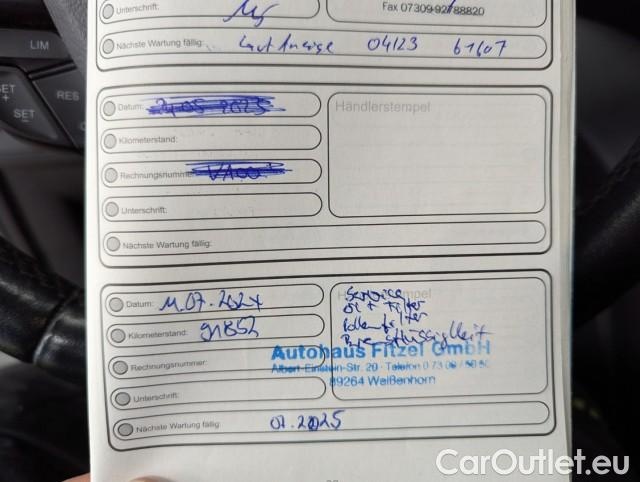 LIM
SET
+
RES
SET
Unterschrift:
Fax 07309-92788820
Nächste Wartung fällig: Laut Anzeige 04/23 61607
Datum: 24.05.2023
Händlerstempel
Kilometerstand:
Rechnungsnummer
Unterschrift:
Nächste Wartung fällig:
Datum: 11.07.2024
Service
Öl + Filter
Pollenfilter
Bremsflüssigkeit
Kilometerstand: 91852
Autohaus Fitzel GmbH
Rechnungsnummer:
Albert-Einstein-Str. 20 · Telefon 0 73 09 /
89264 Weißenhorn
Unterschrift:
Nächste Wartung fällig: 07.2025
CarOutlet.eu